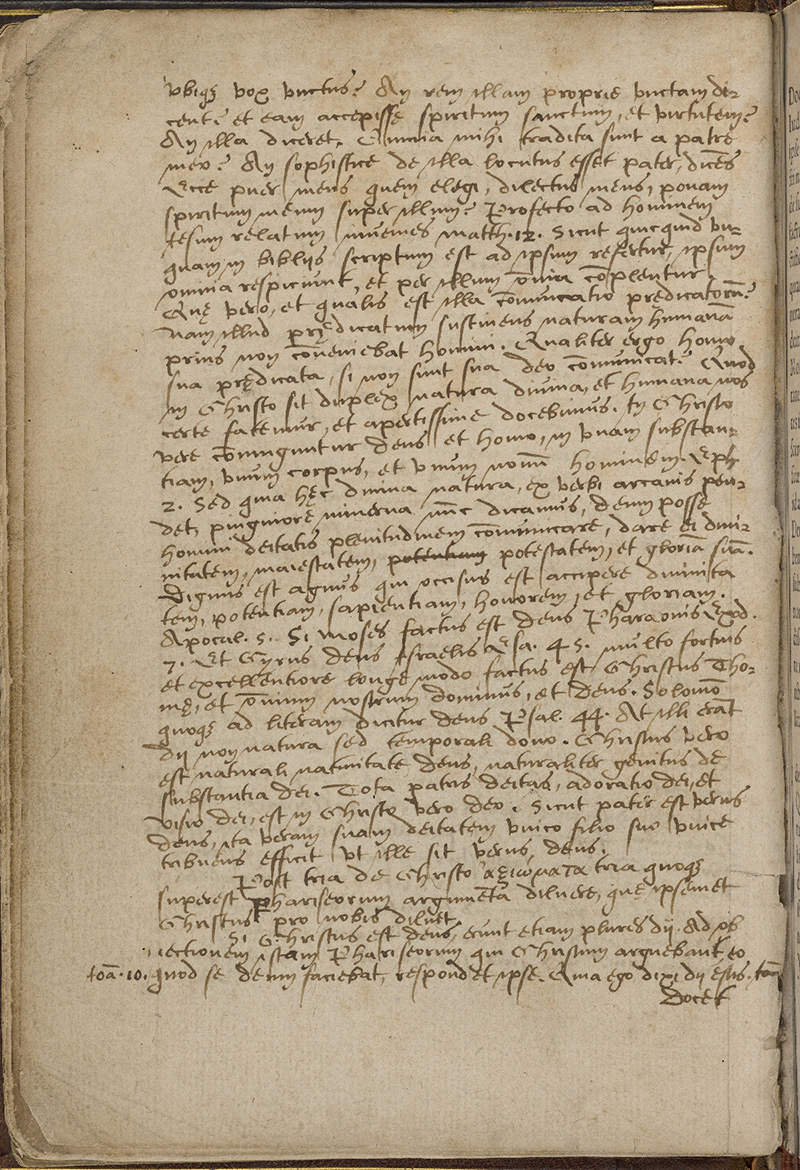 vbiq₃ vox vnctus? An rem illam proprie vnctam di-
cent? et eam accepisse spiritum sanctum, et virtutem?
An illa diceret, Omnia mihi tradita sunt a patre
meo? An sophistice de illa locutus esset pater, dicēs
Ecce puer meus quem elegi, dilectus meus, ponam
spiritum meum super illum? Profecto ad hominem
Iesum relatum inuenies matth. 12. Sicut quicquid vn-
quam in biblijs scriptum est ad ipsum refertur, ipsum
omnia respiciunt, et per illum ōnia cōplentur.
Quę vero, et qualis est illa cōmunicatio predicatorū?
nam illud prędicatum sustinens naturam humanā
prius non cōueniebat homini. Qualiter ergo homo
sua prędicata, si non sunt sua deo cōmunicat? Quod
in Christo sit duplex natura diuina, et humana nos
certe fatemur, et apertissime docebimus. In Christo
vere coniunguntur deus et homo, in vnam substan-
tiam, vnum corpus, et vnum nouū hominem. Eph.
2. Sed quia hęc diuina natura, ex verbi arcanis pen-
det, pinguiore minerua nūc dicamus, deum posse
homini deitatis plenitudinem cōmunicare, dare ei diui-
nitatem, maiestatem, potentiam potestatem, et gloriā suā.
Dignus est agnus qui occisus est accipere diuinita
tem, potentiam, sapientiam, honorem, et gloriam.
Apocal. 5. Si Moses factus est deus Pharaonis Exod.
7. Et Cyrus deus Israelis Esa. 45. multo fortius
et excellentiore longe modo factus est Christus Tho-
mę, et ōnium nostrum dominus, et deus. Solomō
quoq₃ ad literam dicitur deus Psal. 44. At illi erāt
dij non natura sed temporali dono. Christus vero
est naturali natiuitate deus, naturaliter genitus de
substantia dei. Tota patris deitas, adoratio dei, et
visio dei, est in Christo vero deo. Sicut pater est verus
deus, ita veram suam deitatem vnico filio suo vnice
tribuens efficit vt ille sit verus deus.
Post tria de Christo ἀξιώματα tria quoq₃
superest Phariseorum argumēta diluere, quę ipsemet
Christus pro nobis diluet.
Si Christus est deus erunt etiam plures dij. Ad ob
iectionem istam Phariseorum qui Christum arguebant eo
Ioā. 10. quod se deum faciebat, respondet ipse. Quia ego dixi dij estis.
Docet